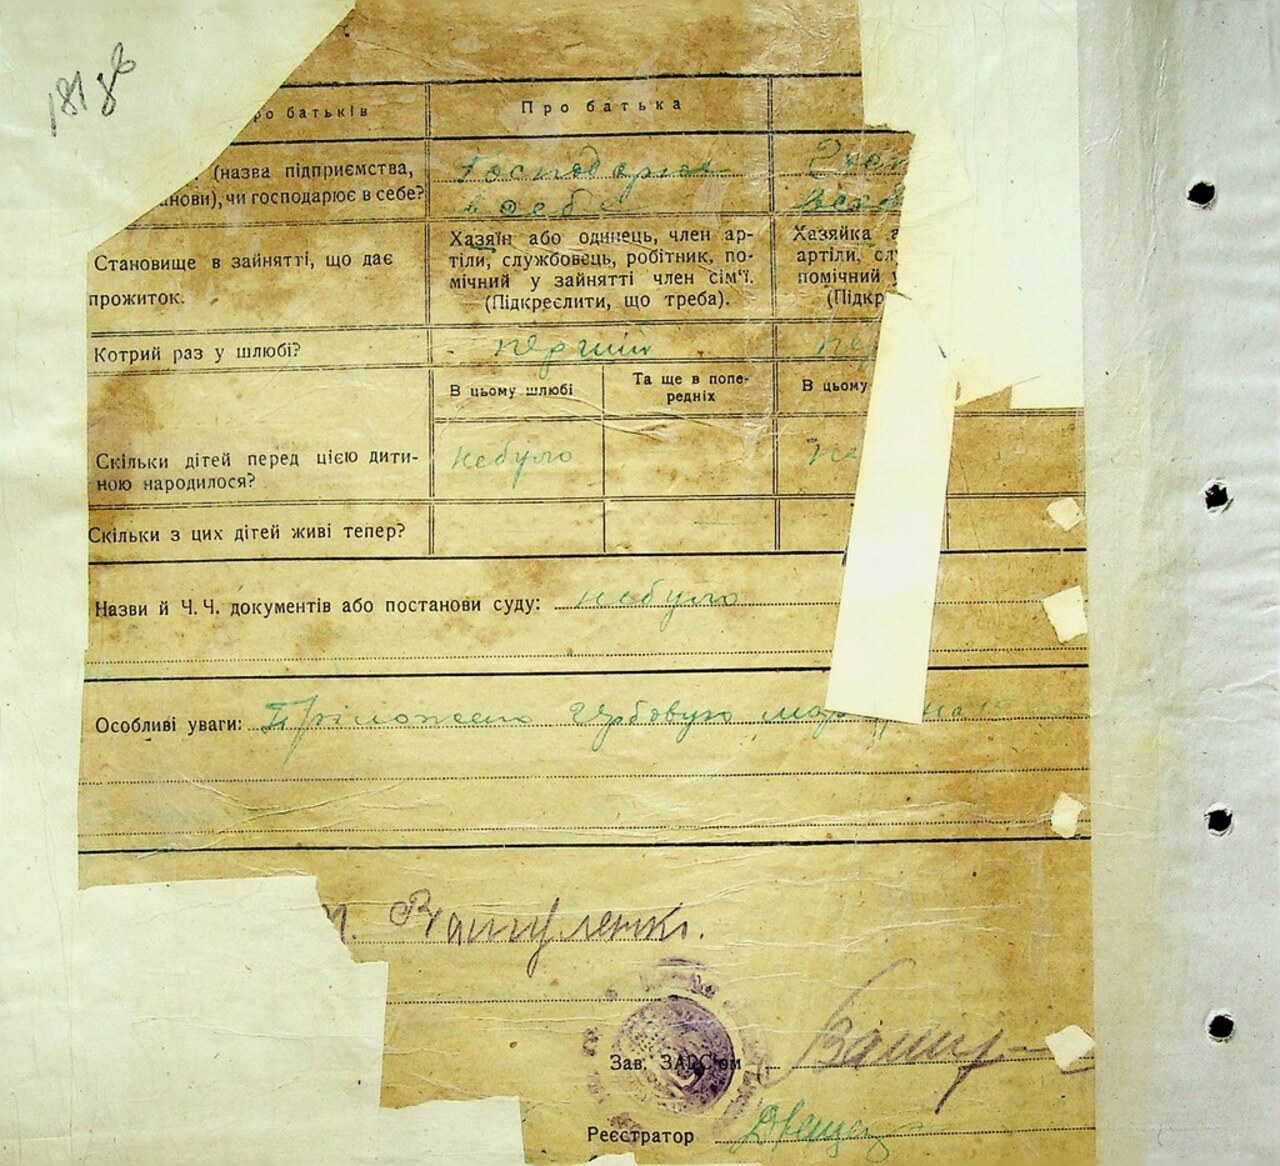 181 зв
ро батьків
Про батька
(назва підприємства,
нови), чи господарює в себе?
Господарює
в себе
Становище в зайнятті, що дає
прожиток.
Хазяїн або одинець, член ар-
тілі, службовець, робітник, по-
мічний у зайнятті член сім'ї.
(Підкреслити, що треба).
Хазяйка а
артілі, сл
помічний у
(Підкр
Котрий раз у шлюбі?
перший
В цьому шлюбі
Та ще в попе-
редніх
В цьому
Скільки дітей перед цією дити-
ною народилося?
небуло
не
Скільки з цих дітей живі тепер?
Назви й Ч. Ч. документів або постанови суду: небуло
Особливі уваги: Приложено гербовую на 15
Зав. ЗАГС'ом
Реєстратор